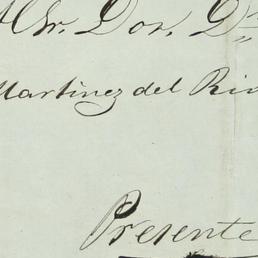 Sr. Dor. D
Martinez del Rio
Presente